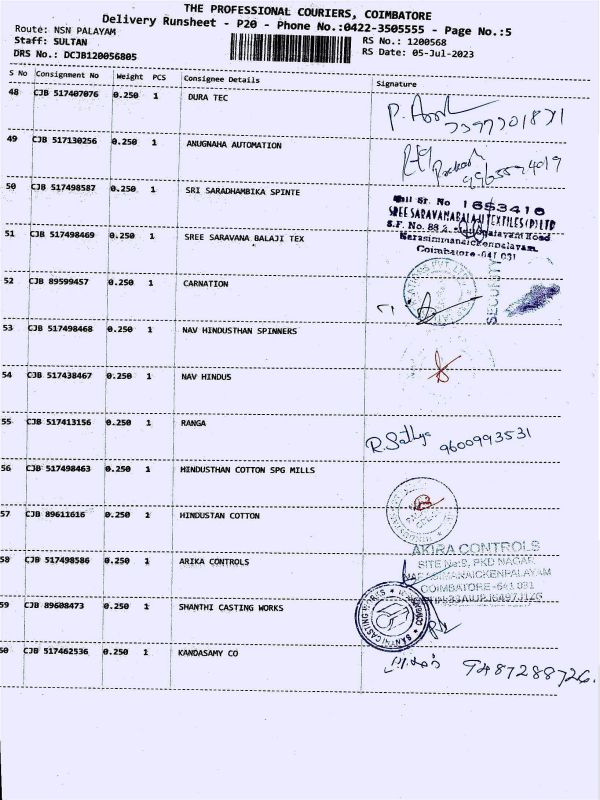 THE PROFESSIONAL COURIERS, COIMBATORE
Delivery Runsheet - P20 - Phone No.:0422-3505555 - Page No.:5
Route: NSN PALAYAM
Staff: SULTAN
RS No.: 1200568
DRS No.: DCJB120056805
RS Date: 05-Jul-2023
S No Consignment No Weight PCS Consignee Details Signature
48 CJB 517407076 0.250 1 DURA TEC
49 CJB 517130256 0.250 1 ANUGNAHA AUTOMATION
Prakash
50 CJB 517498587 0.250 1 SRI SARADHAMBIKA SPINTE
1653410
SREE SARAVANABALAJI TEXTILES (P) LTD
51 CJB 517498469 0.250 1 SREE SARAVANA BALAJI TEX
Narasimmanaickenpalayam,
Coimbatore-641 031
52 CJB 89599457 0.250 1 CARNATION
SECURITY
53 CJB 517498468 0.250 1 NAV HINDUSTHAN SPINNERS
54 CJB 517438467 0.250 1 NAV HINDUS
55 CJB 517413156 0.250 1 RANGA
R. Sathya 9600993531
56 CJB 517498463 0.250 1 HINDUSTHAN COTTON SPG MILLS
57 CJB 89611616 0.250 1 HINDUSTAN COTTON
58 CJB 517498586 0.250 1 ARIKA CONTROLS
AKIRA CONTROLS
SITE No:9, PKD NAGAR
NARASIMANAICKENPALAYAM
COIMBATORE-641 031
59 CJB 89608473 0.250 1 SHANTHI CASTING WORKS
SANTHI CASTING WORKS
60 CJB 517462536 0.250 1 KANDASAMY CO
9487288726.